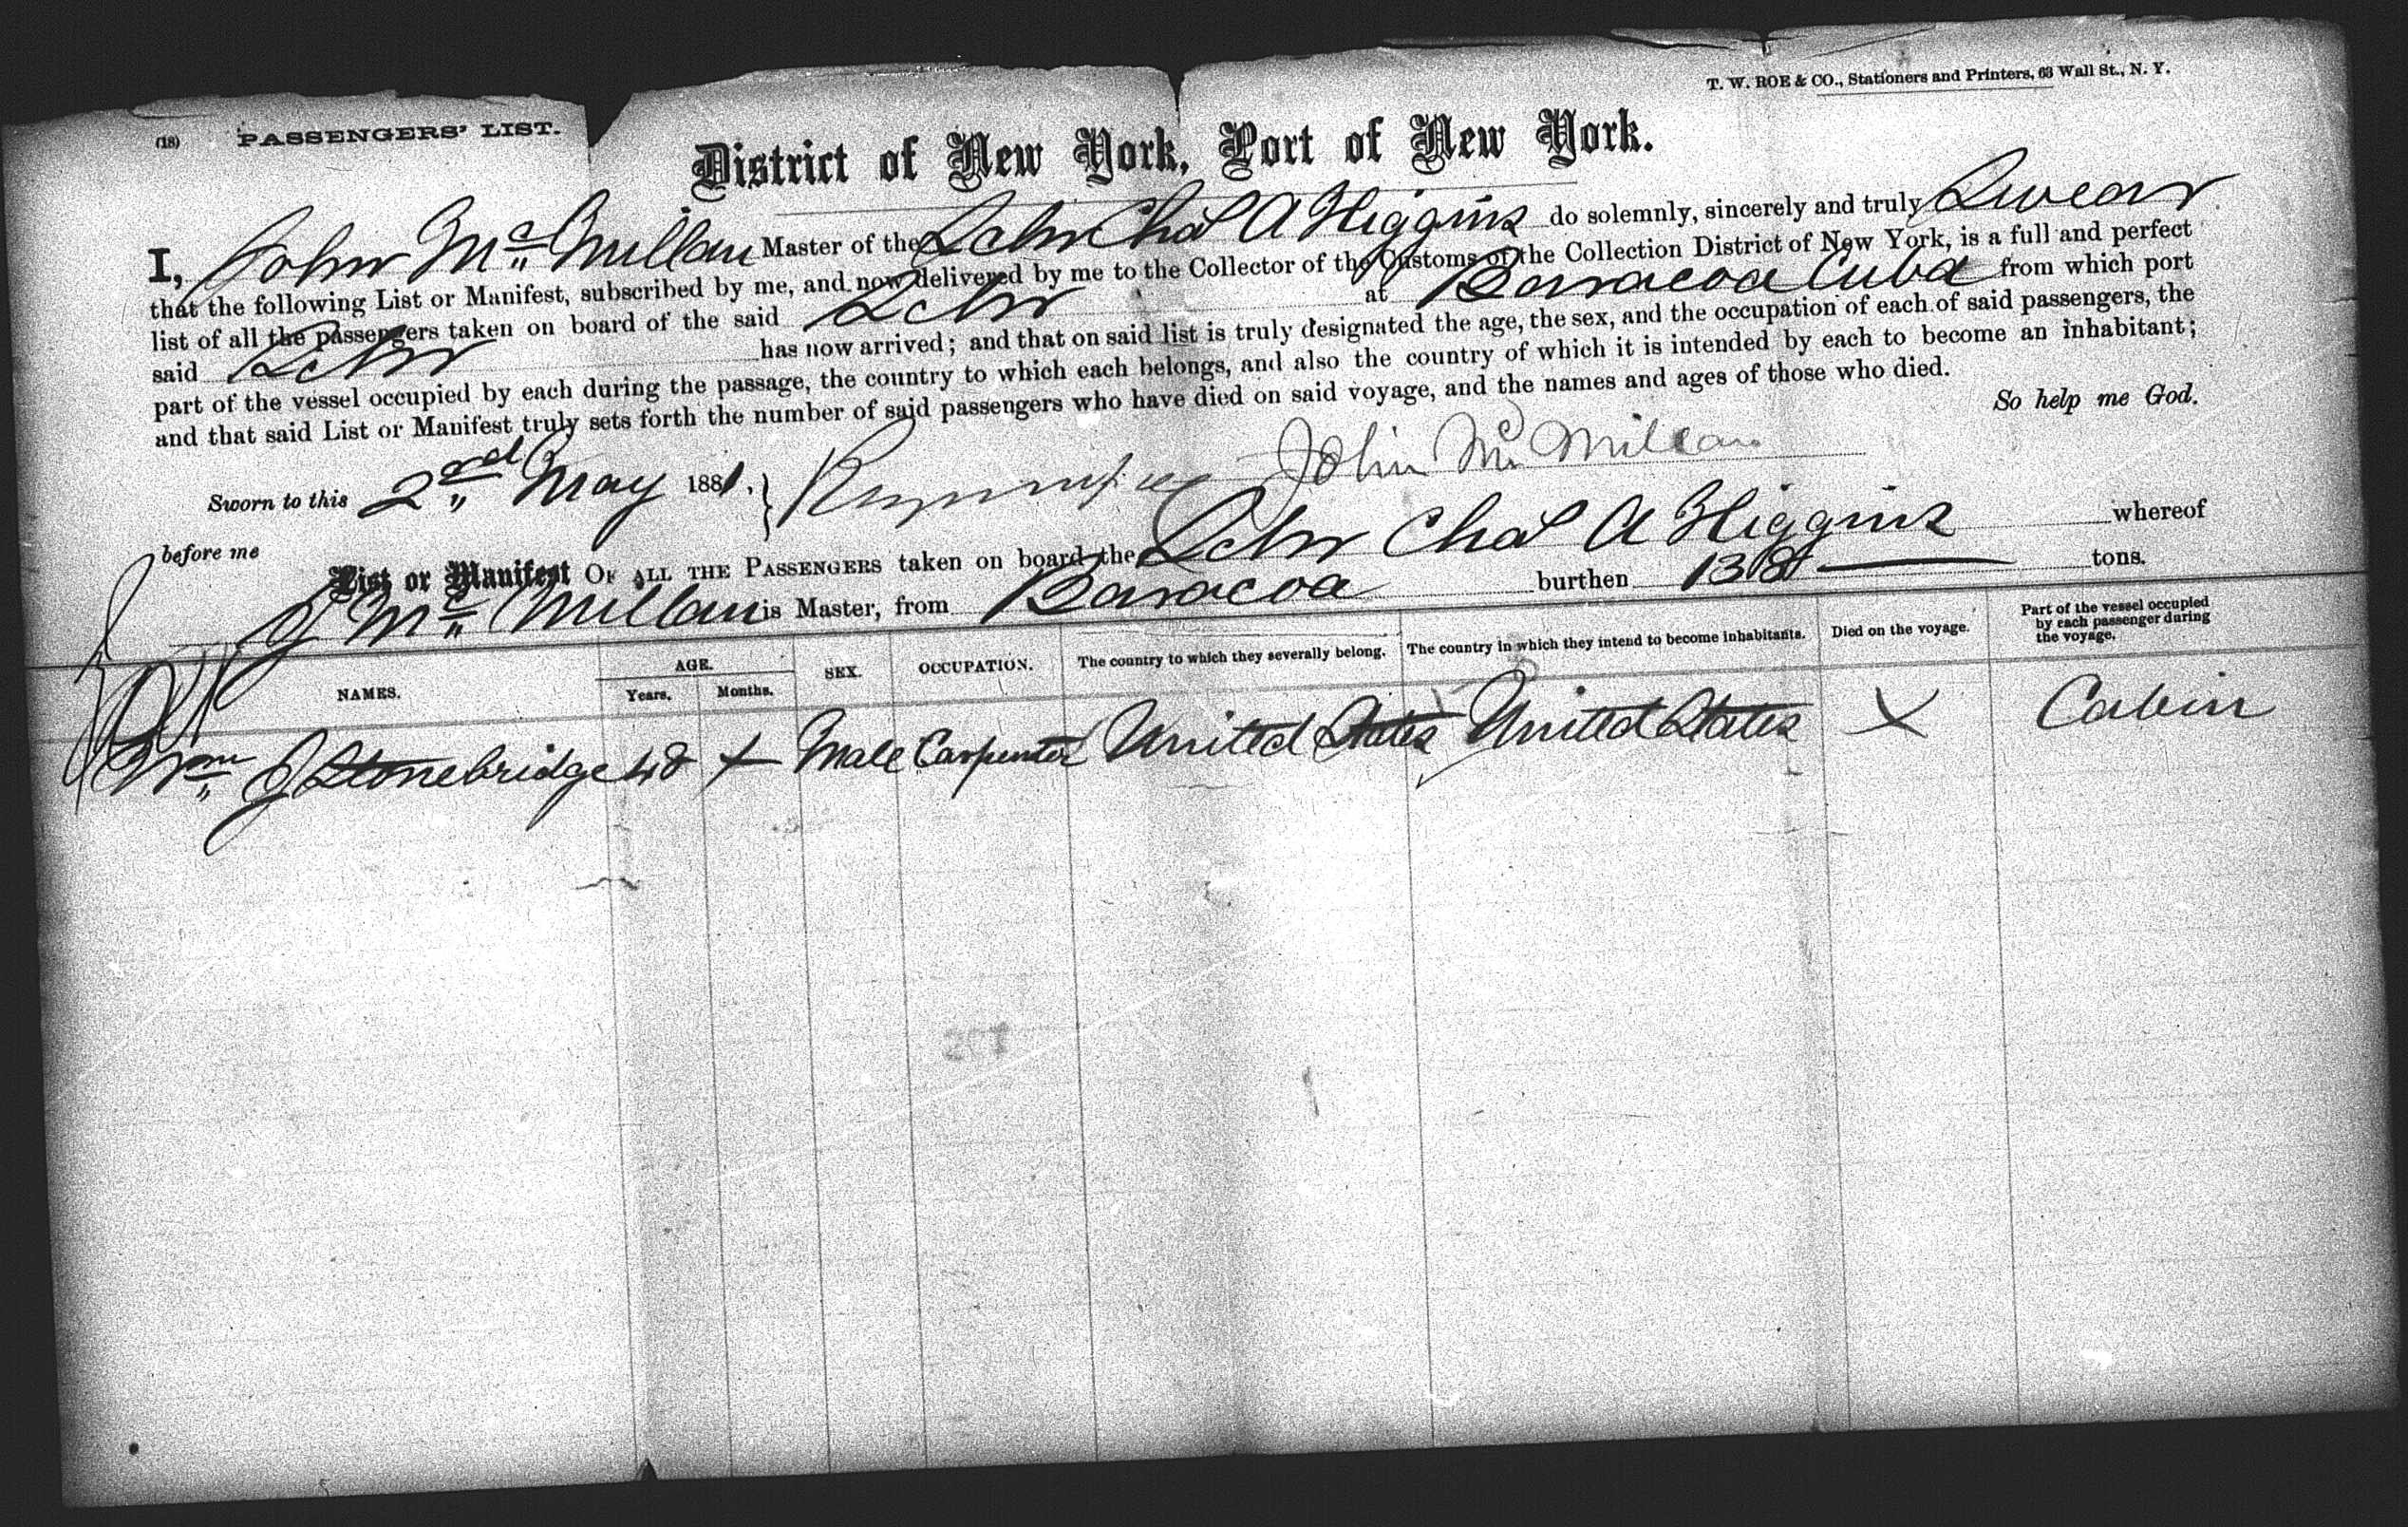 T. W. ROE & CO., Stationers and Printers, 63 Wall St., N. Y.
(18) PASSENGERS' LIST.
District of New York, Port of New York.
I, John Mc Millan Master of the Schr Chas A Higgins do solemnly, sincerely and truly Swear
that the following List or Manifest, subscribed by me, and now delivered by me to the Collector of the Customs of the Collection District of New York, is a full and perfect
list of all the passengers taken on board of the said Schr at Baracoa Cuba from which port
said Schr has now arrived; and that on said list is truly designated the age, the sex, and the occupation of each of said passengers, the
part of the vessel occupied by each during the passage, the country to which each belongs, and also the country of which it is intended by each to become an inhabitant;
and that said List or Manifest truly sets forth the number of said passengers who have died on said voyage, and the names and ages of those who died.
So help me God.
Sworn to this 2nd May 1881. John Mc Millan
before me
List or Manifest OF ALL THE PASSENGERS taken on board the Schr Chas A Higgins whereof
J Mc Millan is Master, from Baracoa burthen tons.
NAMES. AGE. Years. Months. SEX. OCCUPATION. The country to which they severally belong. The country in which they intend to become inhabitants. Died on the voyage. Part of the vessel occupied by each passenger during the voyage.
Wm J Stonebridge 48 Male Carpenter United States United States X Cabin